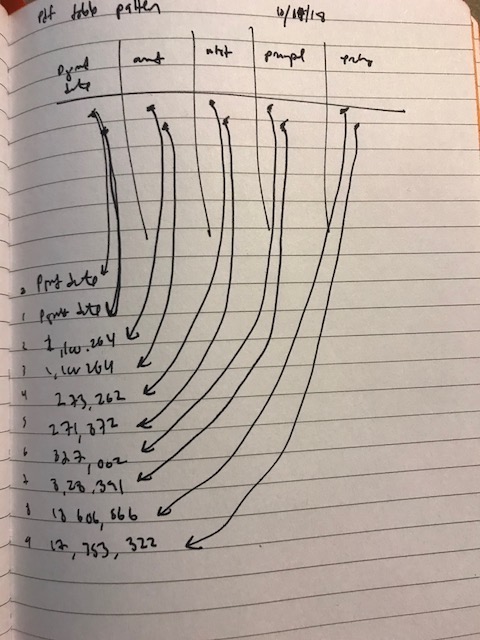 pdf table pattern 10/19/18
pymt date amt int prinpl
0 pymt date
1 pymt date
2 1,100.264
3 1,100 264
4 273,262
5 271,372
6 327,002
7 3,28,391
8 18 606,566
9 17,753,322